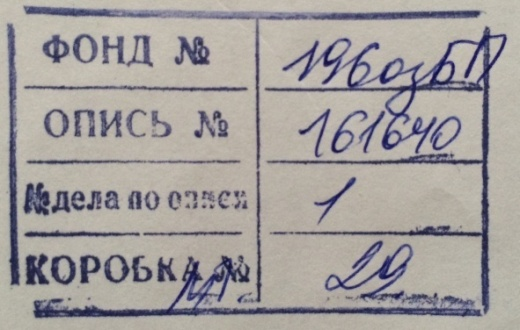 ФОНД № 196озбп
ОПИСЬ № 161640
№ дела по описи 1
КОРОБКА № 29